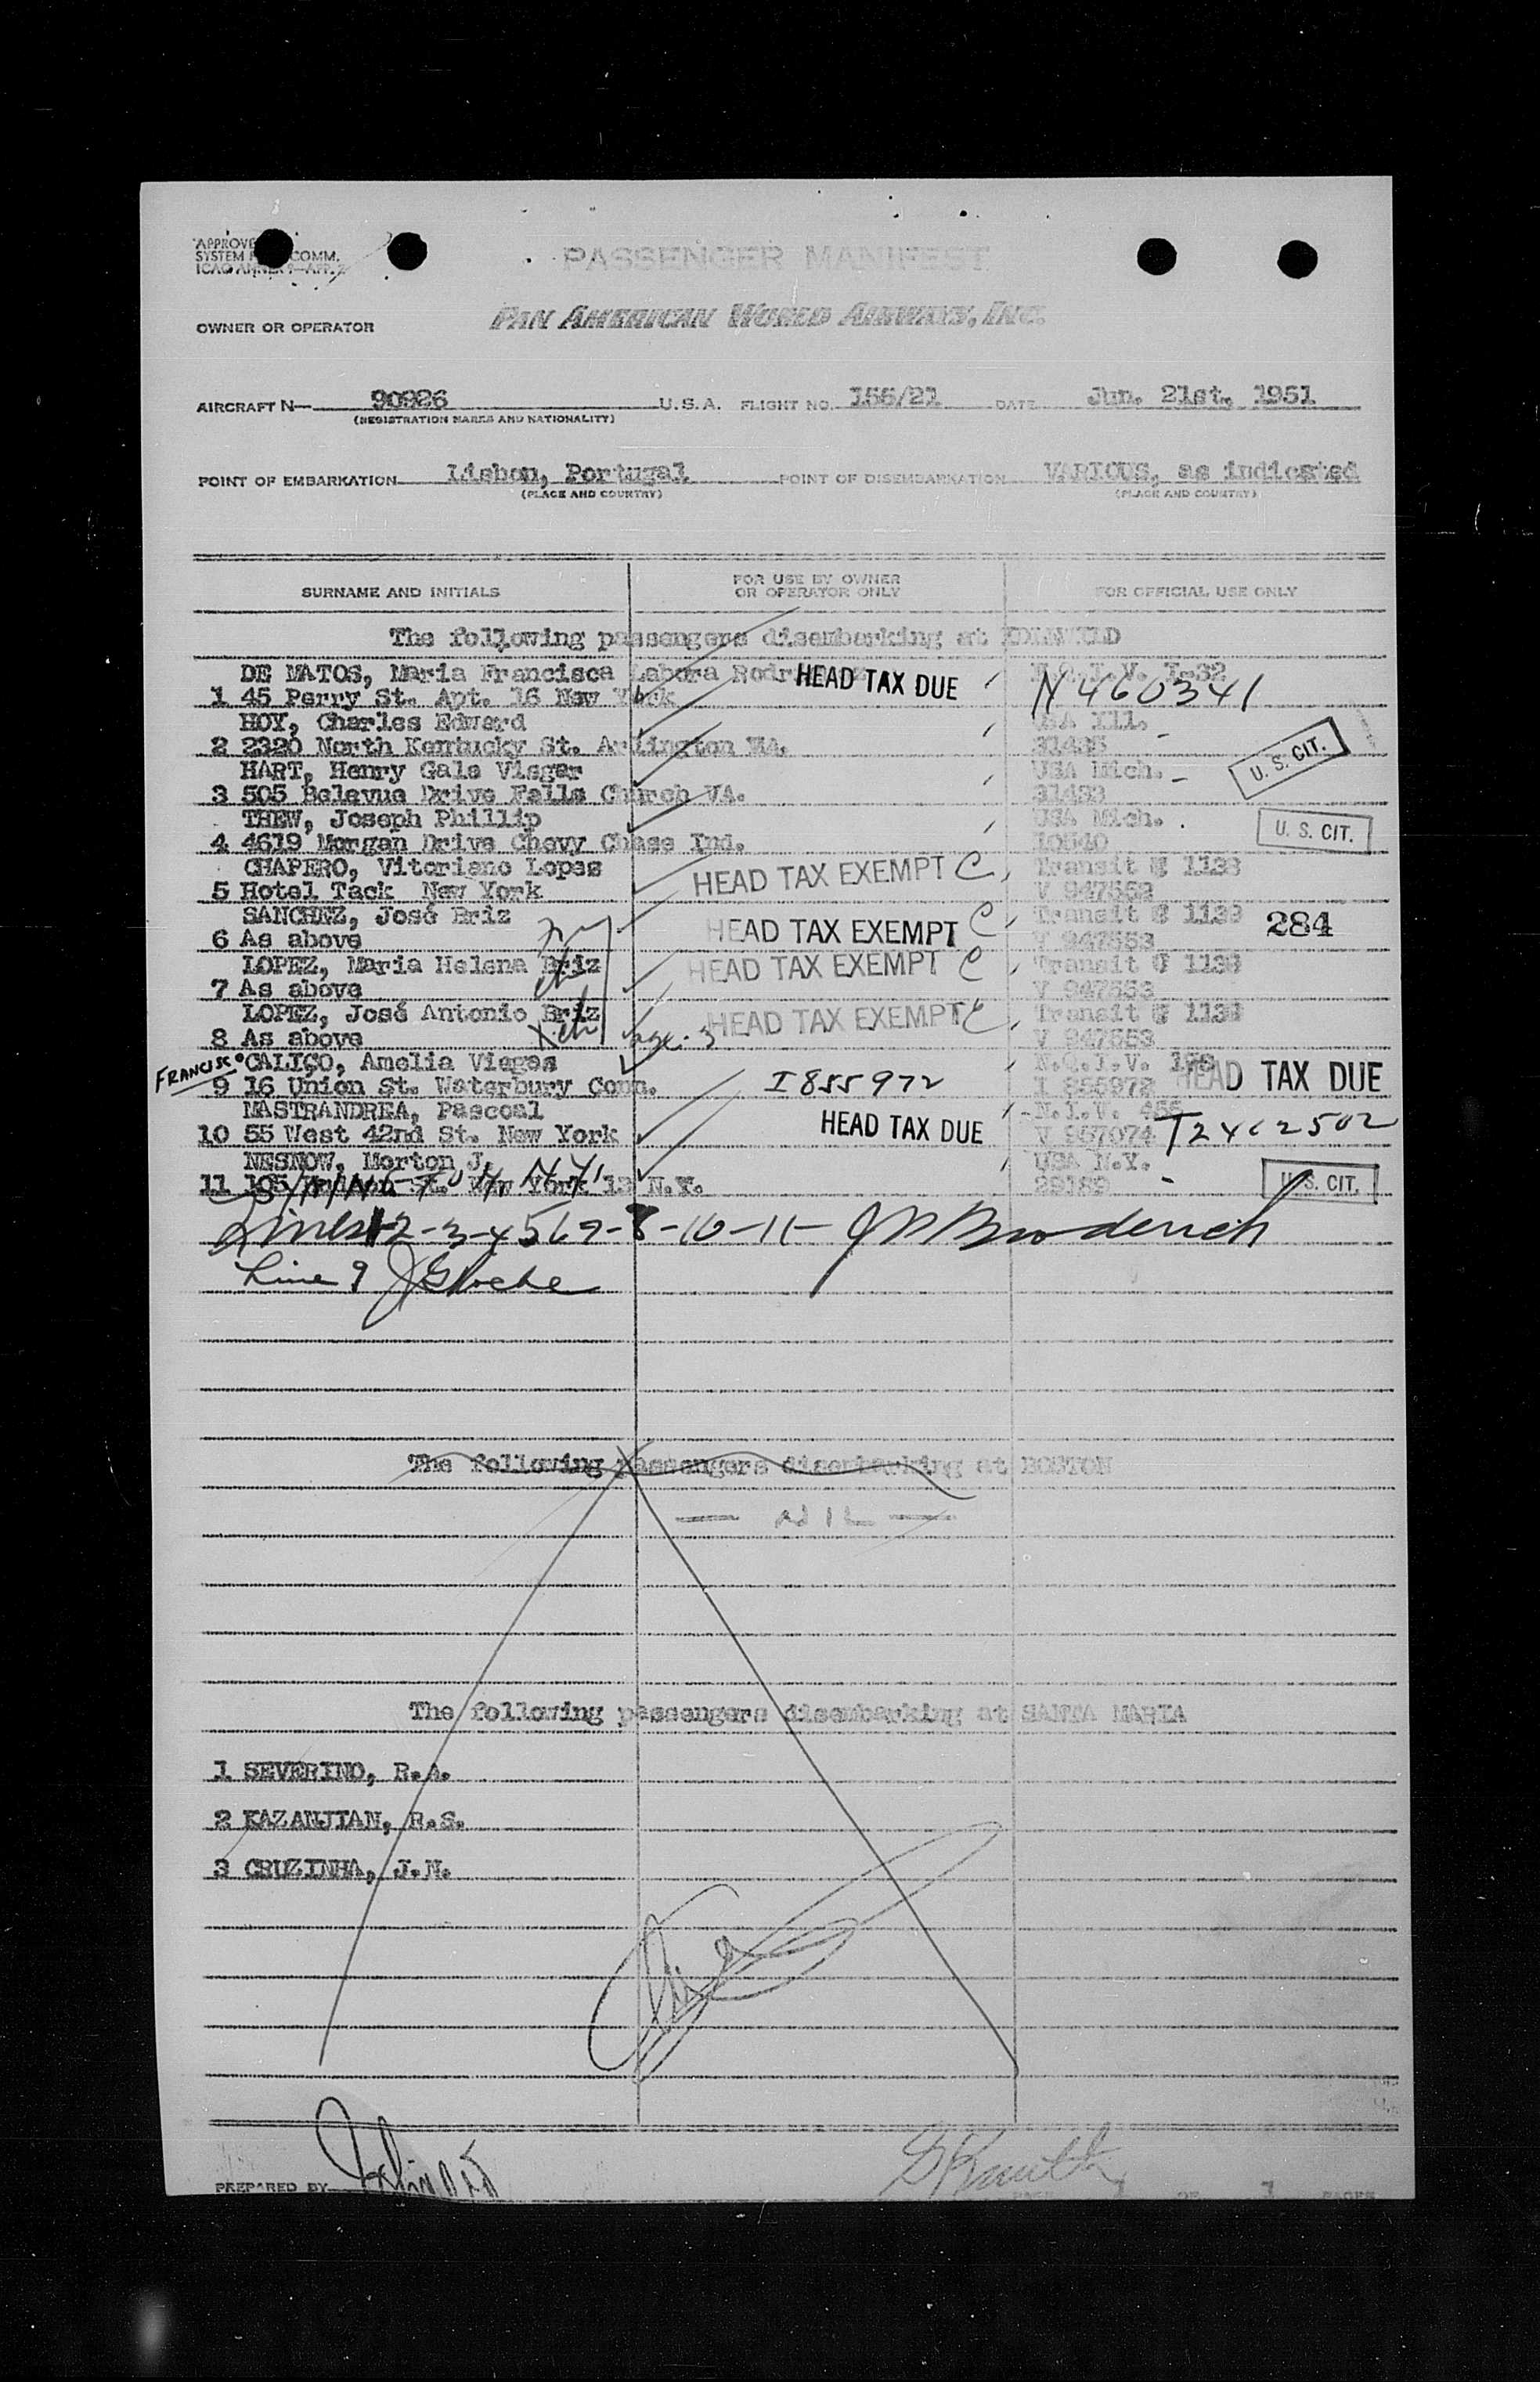 PASSENGER MANIFEST
PAN AMERICAN WORLD AIRWAYS, INC.
OWNER OR OPERATOR
AIRCRAFT N— 90926 U.S.A. FLIGHT NO. 156/21 DATE Jun. 21st, 1951
(REGISTRATION MARKS AND NATIONALITY)
POINT OF EMBARKATION Lisbon, Portugal POINT OF DISEMBARKATION VARIOUS, as indicated
(PLACE AND COUNTRY) (PLACE AND COUNTRY)
SURNAME AND INITIALS FOR USE BY OWNER OR OPERATOR ONLY FOR OFFICIAL USE ONLY
The following passengers disembarking at
DE MATOS, Maria Francisca Labora HEAD TAX DUE
1 45 Perry St. Apt. 16 New York N460341
HOY, Charles Edward USA Ill.
2 2320 North Kentucky St. Arlington U. S. CIT.
HART, Henry Gale Visger USA Mich.
3 505 Belevue Drive Falls Church VA.
THEW, Joseph Phillip USA Mich.
4 4619 Morgan Drive Chevy Chase Ind. 10540 U. S. CIT.
CHAPERO, Vitoriano Lopes HEAD TAX EXEMPT C Transit
5 Hotel Tack New York
SANCHEZ, José Briz HEAD TAX EXEMPT C Transit 284
6 As above V 947553
LOPEZ, Maria Helena Briz HEAD TAX EXEMPT C Transit
7 As above V 947553
LOPEZ, José Antonio Briz HEAD TAX EXEMPT C Transit
8 As above V 947553
FRANCISCO CALIÇO, Amelia Viegas N.Q.I.V.
9 16 Union St. Waterbury Conn. I855972 I 855972 HEAD TAX DUE
MASTRANDREA, Pascoal HEAD TAX DUE N.I.V.
10 55 West 42nd St. New York V 957074
NESNOW, Morton J. USA N.Y.
11 105 St. New York 13 N.Y. 29189 U. S. CIT.
Lines 1 2-3-4 5 6 7-8-10-11- J Broderick
Line 9
The following passengers disembarking at BOSTON
— NIL —
The following passengers disembarking at SANTA MARIA
1 SEVERINO, R.A.
2 KAZANJIAN, R.S.
3 CRUZINHA, J.N.
PREPARED BY
PAGE 1 OF 1 PAGES